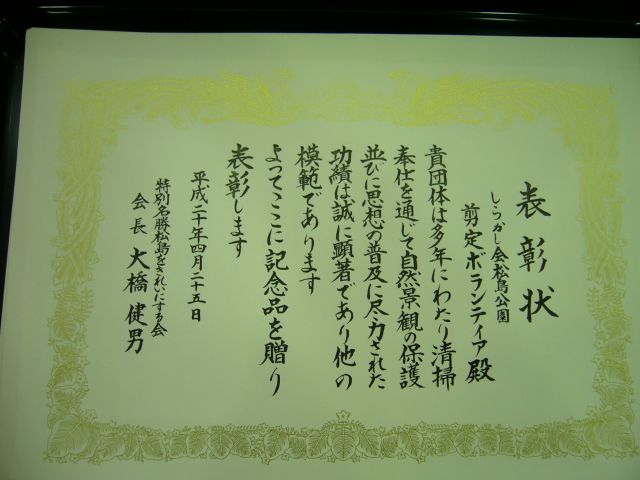 表彰状
しらかし会松島公園
剪定ボランティア殿
貴団体は多年にわたり清掃
奉仕を通じて自然景観の保護
並びに思想の普及に尽力された
功績は誠に顕著であり他の
模範であります
よってここに記念品を贈り
表彰します
平成二十年四月二十五日
特別名勝松島をきれいにする会
会長 大橋健男